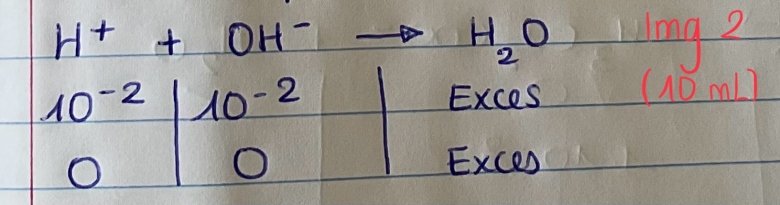 H⁺ + OH⁻ → H₂O Img 2
10⁻² | 10⁻² | Exces (10 mL)
0 | 0 | Exces